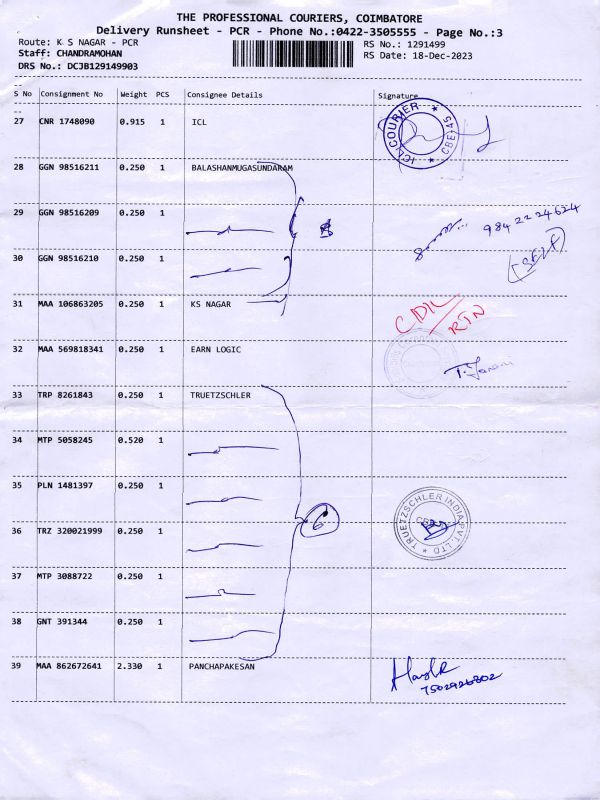 THE PROFESSIONAL COURIERS, COIMBATORE
Delivery Runsheet - PCR - Phone No.:0422-3505555 - Page No.:3
Route: K S NAGAR - PCR RS No.: 1291499
Staff: CHANDRAMOHAN RS Date: 18-Dec-2023
DRS No.: DCJB129149903
S No Consignment No Weight PCS Consignee Details Signature
27 CNR 1748090 0.915 1 ICL
ICL COURIER ★ CBE-45 ★
28 GGN 98516211 0.250 1 BALASHANMUGASUNDARAM
29 GGN 98516209 0.250 1
9842224624
(SELF)
30 GGN 98516210 0.250 1
31 MAA 106863205 0.250 1 KS NAGAR
RTN
32 MAA 569818341 0.250 1 EARN LOGIC
33 TRP 8261843 0.250 1 TRUETZSCHLER
34 MTP 5058245 0.520 1
35 PLN 1481397 0.250 1
6
TRUETZSCHLER INDIA PVT. LTD ★
36 TRZ 320021999 0.250 1
37 MTP 3088722 0.250 1
38 GNT 391344 0.250 1
39 MAA 862672641 2.330 1 PANCHAPAKESAN